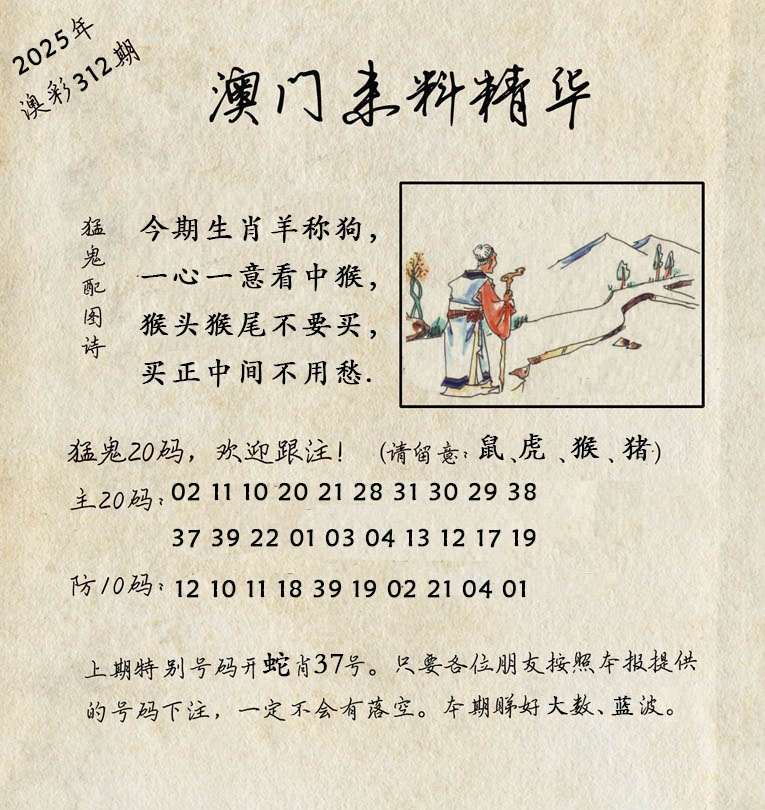 2025年
澳彩312期
澳门来料精华
猛鬼配图诗
今期生肖羊称狗，
一心一意看中猴，
猴头猴尾不要买，
买正中间不用愁.
猛鬼20码，欢迎跟注！（请留意：鼠、虎、猴、猪）
主20码：02 11 10 20 21 28 31 30 29 38
37 39 22 01 03 04 13 12 17 19
防10码：12 10 11 18 39 19 02 21 04 01
上期特别号码开蛇肖37号。只要各位朋友按照本报提供
的号码下注，一定不会有落空。本期睇好大数、蓝波。